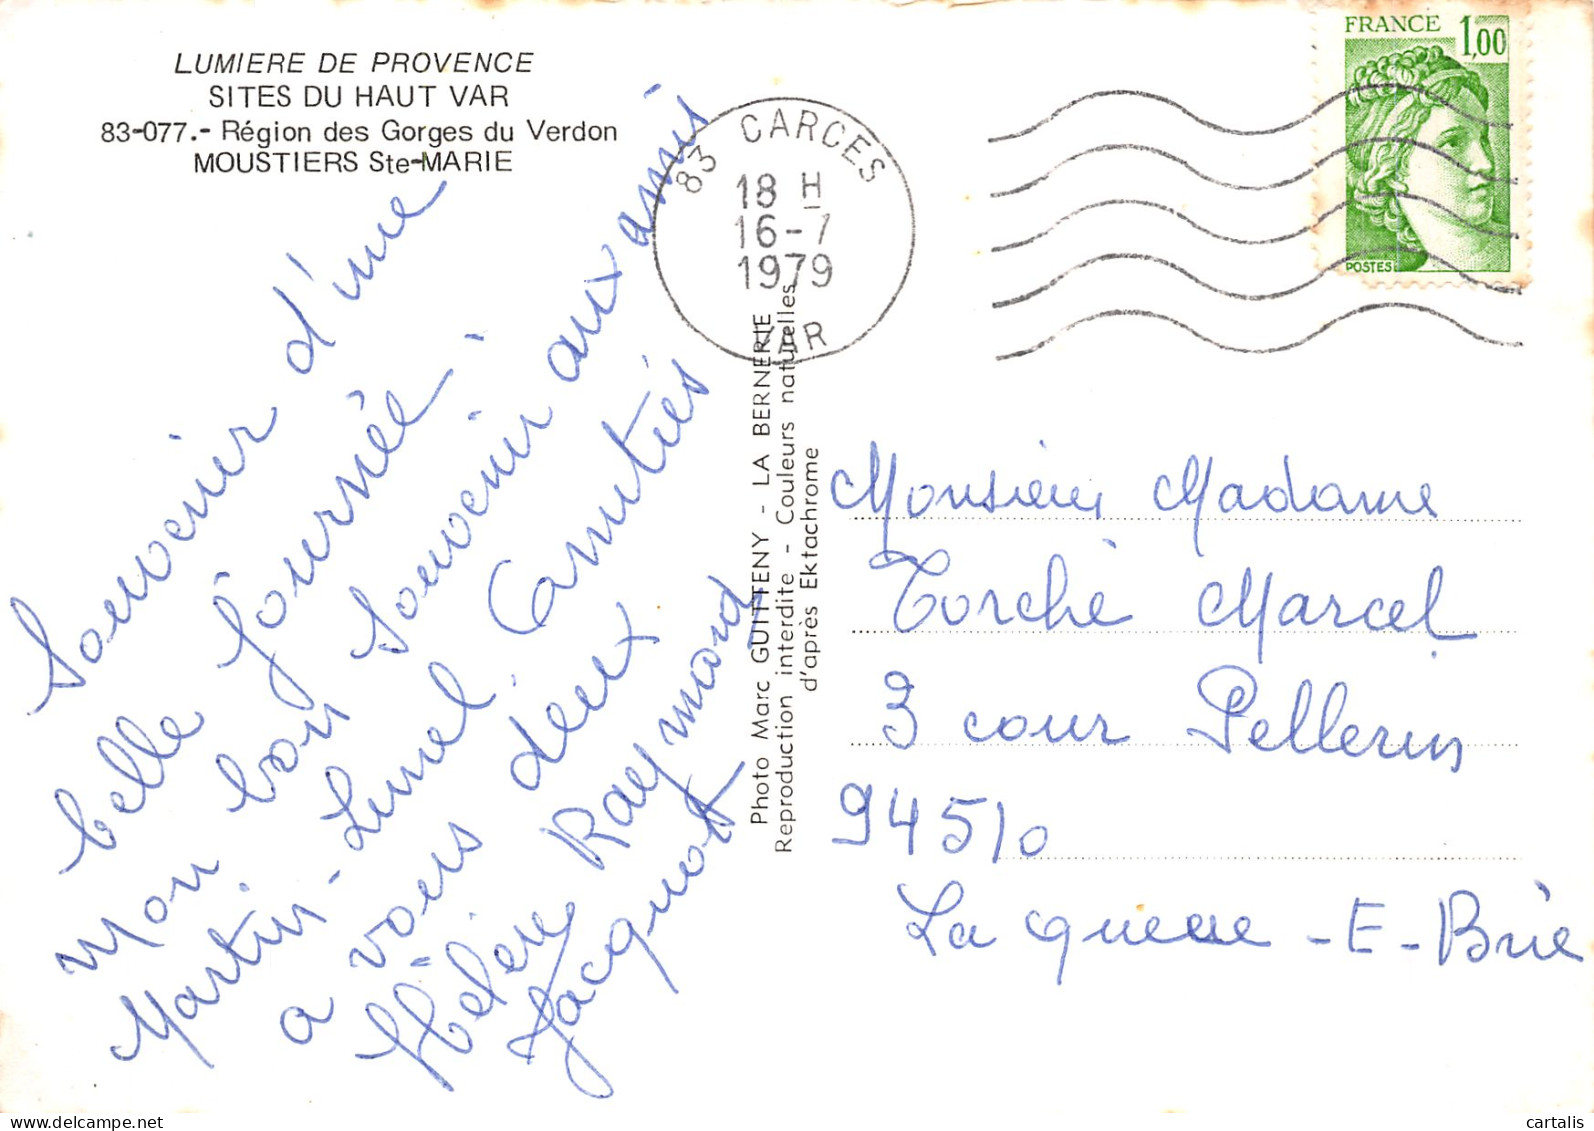 LUMIERE DE PROVENCE
SITES DU HAUT VAR
83-077.- Région des Gorges du Verdon
MOUSTIERS Ste-MARIE
Souvenir d'une
belle journée.
mon bon Souvenir aux amis
Martin-Lunel. Amitiés
a vous deux
Hélène Raymond
Jacquot
83 CARCES
18 H
16-7
1979
VAR
FRANCE 1,00
POSTES
Photo Marc GUITTENY - LA BERNERIE
Reproduction interdite - Couleurs naturelles
d'après Ektachrome
Monsieur Madame
Torché Marcel
3 cour Pellerin
94510
La queue-E-Brie
delcampe.net
cartalis